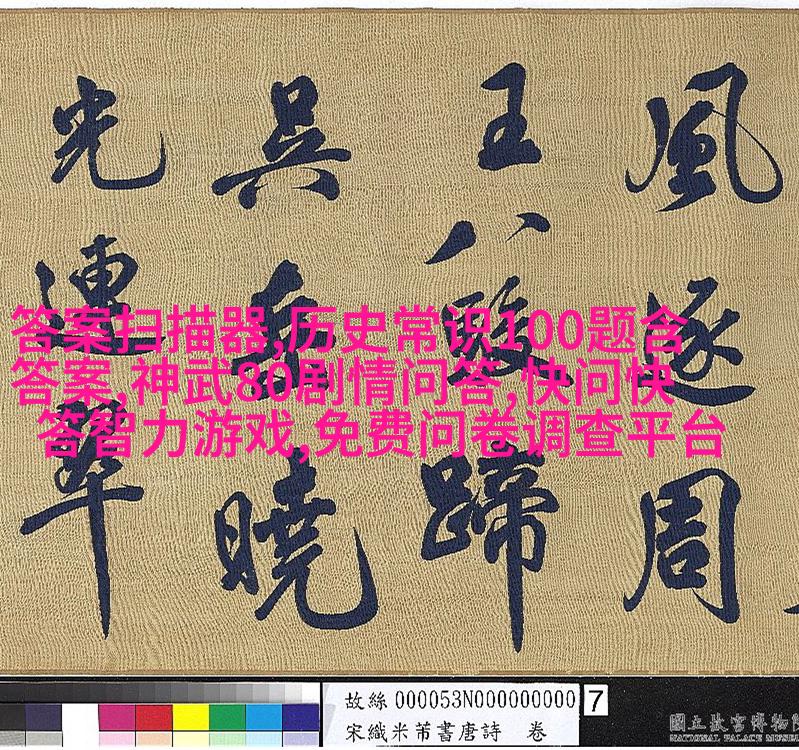 風逐周
王八駿蹄
吳岳曉
光連翠
答案扫描器,历史常识100题含
答案,神武80剧情问答,快问快
答智力游戏,免费问卷调查平台
故絲 000053N000000000 7
宋織米芾書唐詩 卷
國立故宮博物院
NATIONAL PALACE MUSEUM